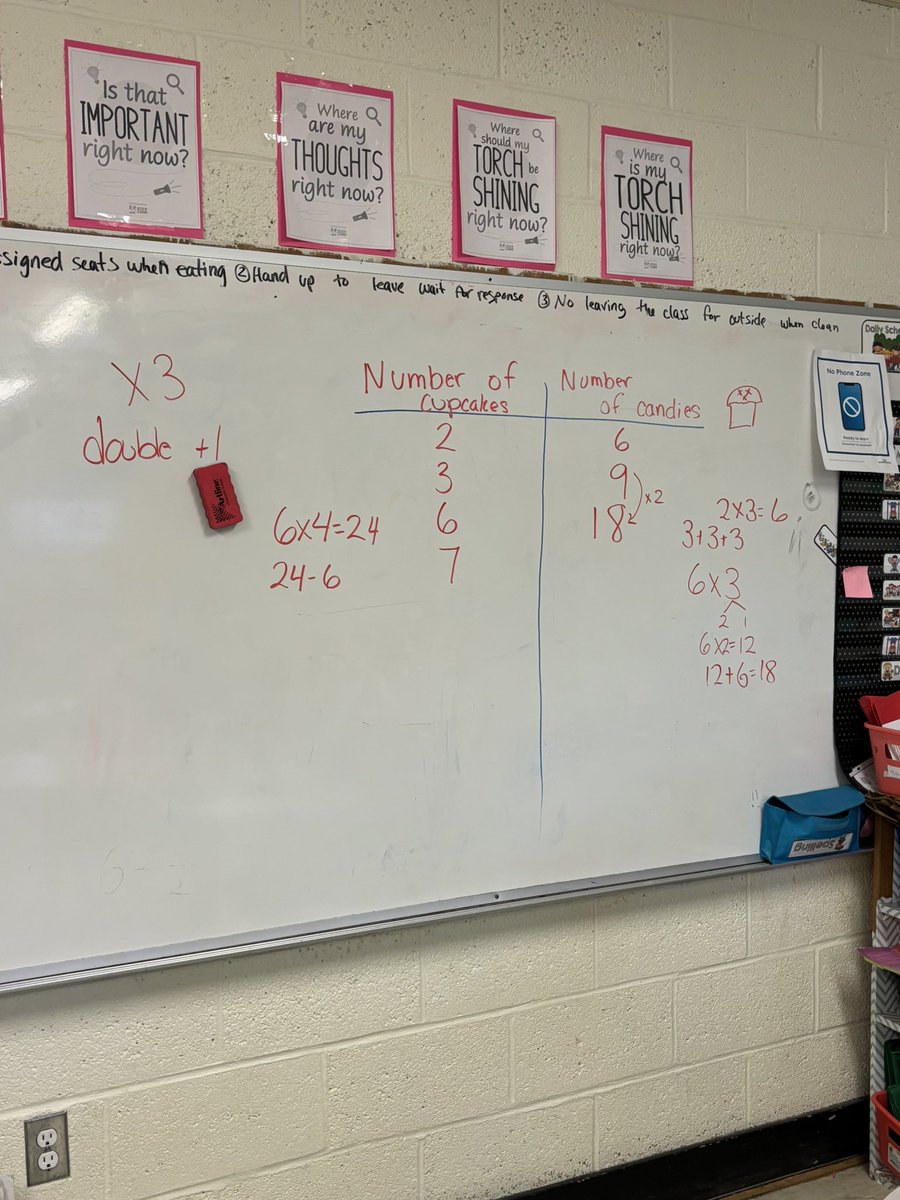 Is that
IMPORTANT
right now?
Where
are my
THOUGHTS
right now?
Where
should my
TORCH be
SHINING
right now?
Where
is my
TORCH
SHINING
right now?
signed seats when eating ② Hand up to leave wait for response ③ No leaving the class for outside when clean
Daily Sche
No Phone Zone
Ready to learn
x3
double +1
Artline
Number of
cupcakes
Number
of candies
2 6
3 9
x2
6x4=24 6 18
24-6 7
2x3=6
3+3+3
6x3
2 1
6x2=12
12+6=18
Spelling